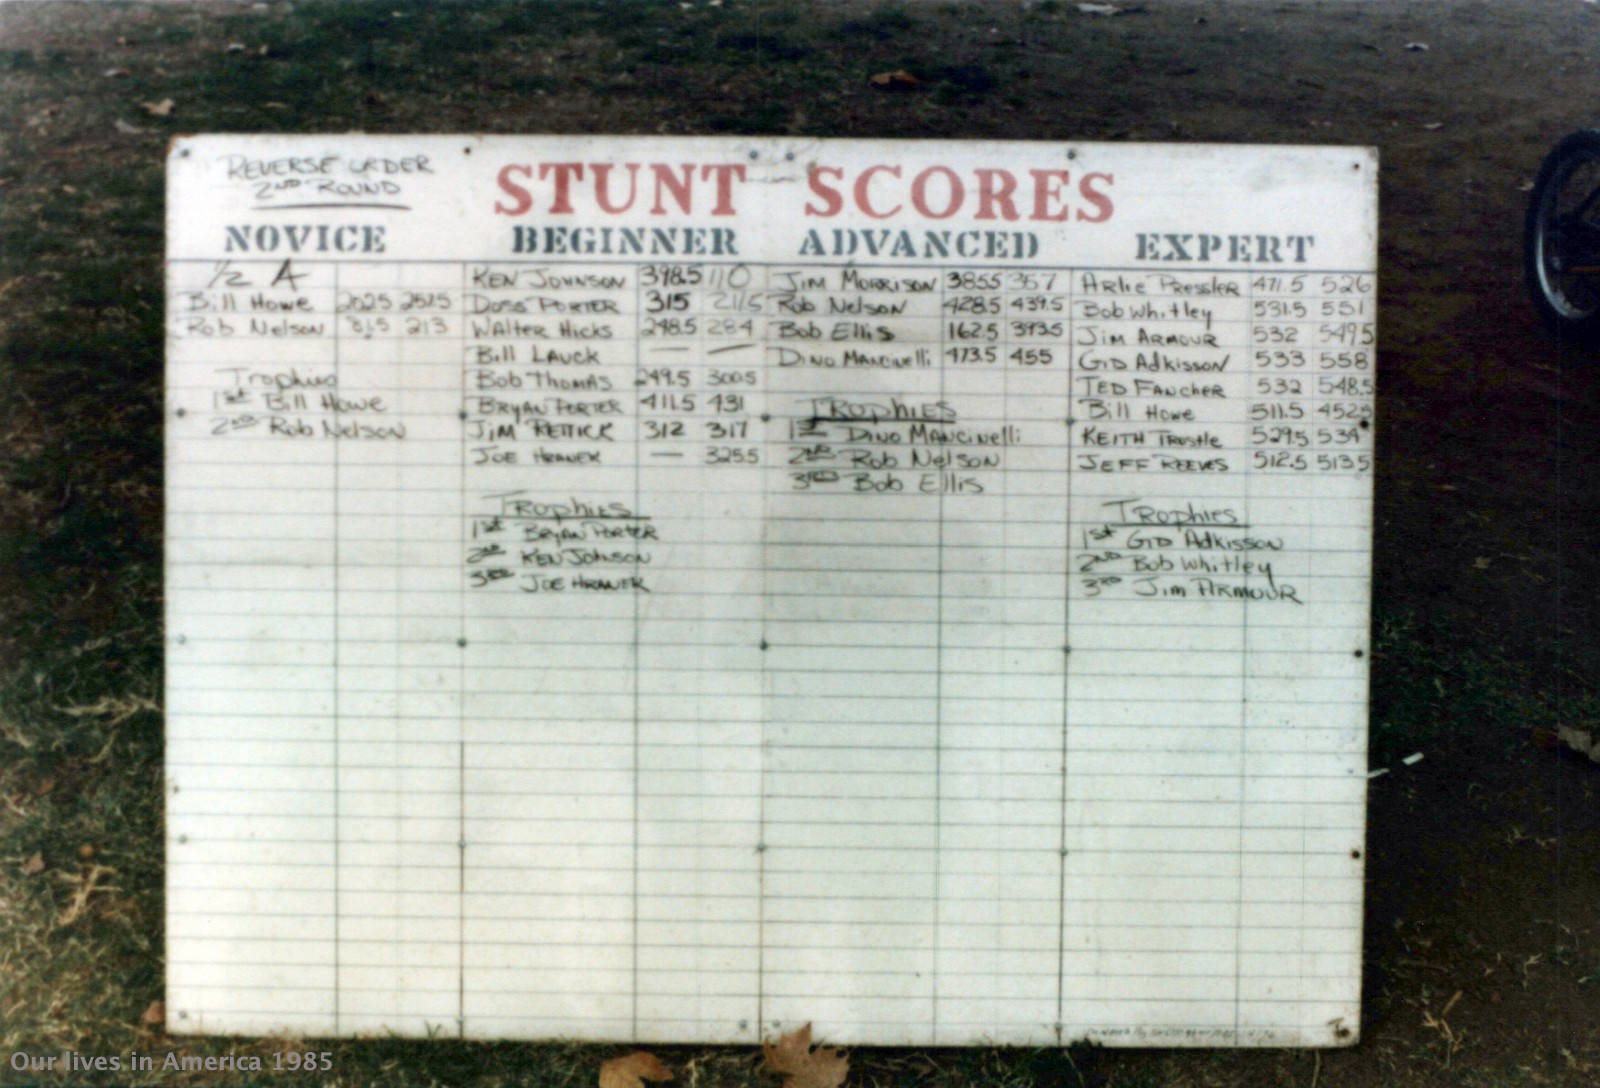 REVERSE ORDER
2ND ROUND
STUNT SCORES
NOVICE
1/2 A
Bill Howe 202.5 251.5
Rob Nelson 81.5 213
Trophies
1st Bill Howe
2nd Rob Nelson
BEGINNER
KEN JOHNSON 398.5 110
DOSS PORTER 315 211.5
WALTER HICKS 248.5 284
Bill LAUCK — —
Bob THOMAS 249.5 300.5
BRYAN PORTER 411.5 431
JIM RETTICK 312 317
JOE HRANEK — 325.5
TROPHIES
1st BRYAN PORTER
2ND KEN JOHNSON
3RD JOE HRANEK
ADVANCED
JIM MORRISON 385.5 357
Rob Nelson 428.5 439.5
Bob Ellis 162.5 393.5
DINO MANCINELLI 473.5 455
TROPHIES
1st DINO MANCINELLI
2ND Rob Nelson
3RD Bob Ellis
EXPERT
ARLIE PRESSLER 471.5 526
Bob Whitley 531.5 551
JIM ARMOUR 532 549.5
GID Adkisson 533 558
TED FANCHER 532 548.5
Bill Howe 511.5 452.5
KEITH TROSTLE 529.5 534
JEFF REEVES 512.5 513.5
TROPHIES
1st GID Adkisson
2ND Bob Whitley
3RD JIM ARMOUR
Our lives in America 1985